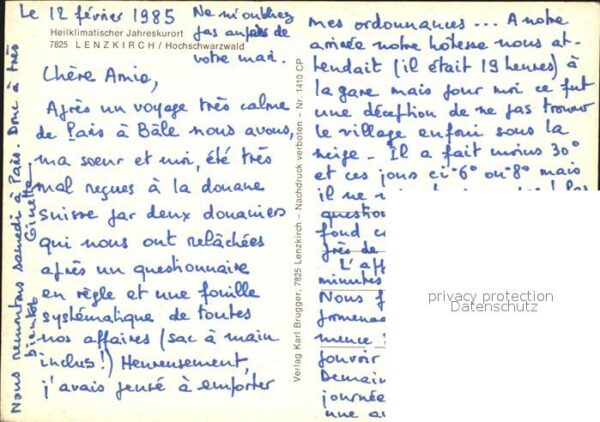 Le 12 février 1985
Heilklimatischer Jahreskurort
7825 LENZKIRCH / Hochschwarzwald
Ne m'oubliez
pas auprès de
votre mari.
Chère Amie,
Après un voyage très calme
de Paris à Bâle nous avons,
ma soeur et moi, été très
mal reçues à la douane
suisse par deux douaniers
qui nous ont relâchées
après un questionnaire
en règle et une fouille
systématique de toutes
nos affaires (sac à main
inclus!) Heureusement,
j'avais pensé à emporter
mes ordonnances... A notre
arrivée notre hôtesse nous at-
tendait (il était 19 heures) à
la gare mais pour moi ce fut
une déception de ne pas trouver
le village enfoui sous la
neige - Il a fait moins 30°
et ces jours ci -6° ou -8° mais
il ne
question
fond
près de
L'
minutes
Nous
promenad
mence
pouvoir
Demain
journée
une
Nous rentrons samedi à Paris. Donc à très
bientôt
Ginette
Verlag Karl Brugger, 7825 Lenzkirch – Nachdruck verboten – Nr. 1410 CP
privacy protection
Datenschutz